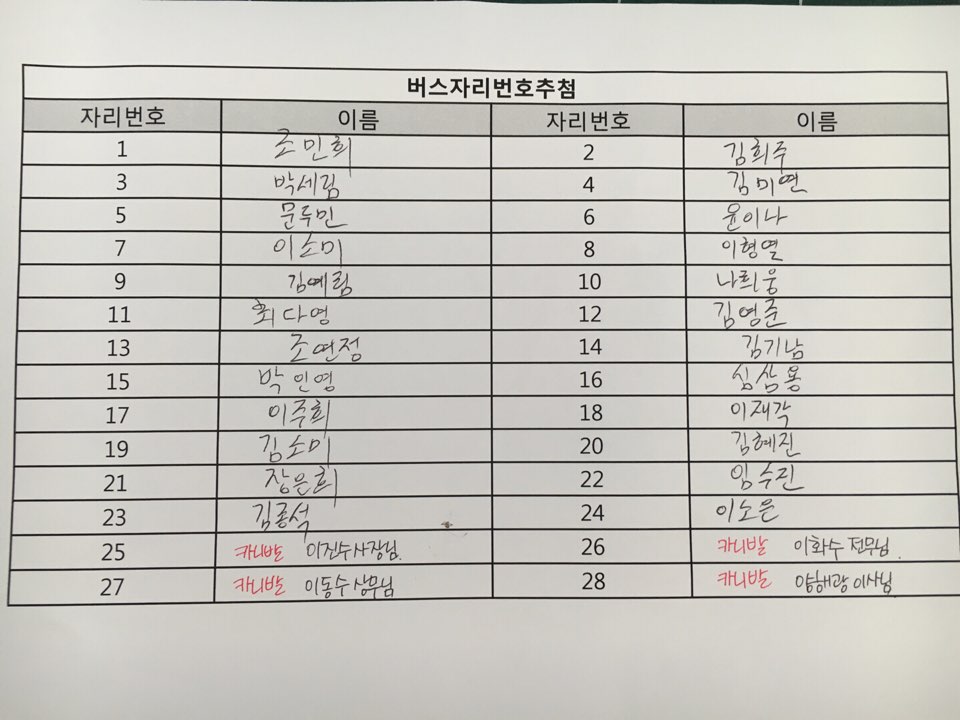 버스자리번호추첨
자리번호 이름 자리번호 이름
1 조민희 2 김희주
3 박세림 4 김미연
5 문두민 6 윤이나
7 이소미 8 이형열
9 김예림 10 나희웅
11 최다영 12 김영준
13 조연정 14 김기남
15 박인영 16 심삼용
17 이주희 18 이재각
19 김소미 20 김혜진
21 장은희 22 임수진
23 김종석 24 이노은
25 카니발 이진수사장님. 26 카니발 이화수 전무님.
27 카니발 이동수상무님 28 카니발 양해광 이사님